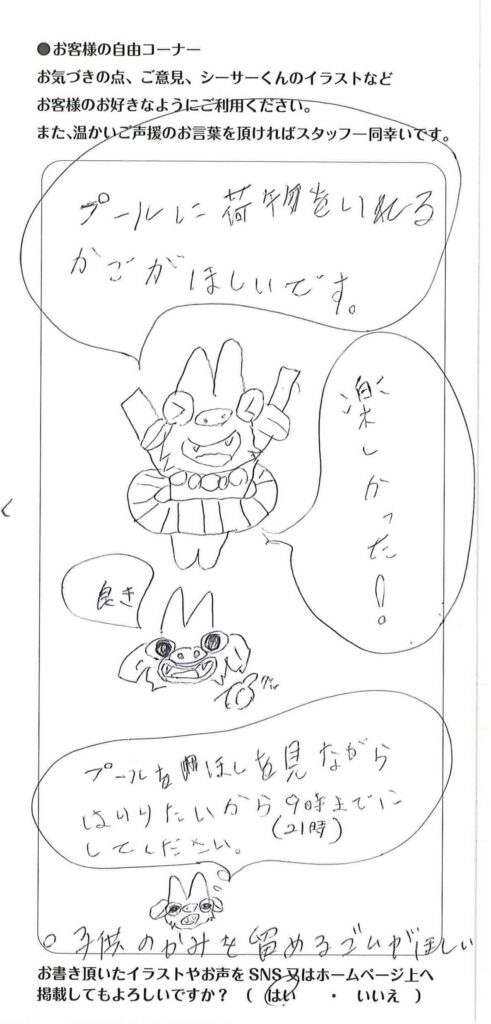 ●お客様の自由コーナー
お気づきの点、ご意見、シーサーくんのイラストなど
お客様のお好きなようにご利用ください。
また、温かいご声援のお言葉を頂ければスタッフ一同幸いです。
プールに荷物をいれる
かごがほしいです。
楽しかった!
良き
プールをほしを見ながら
はいりたいから9時までに
(21時)
してください。
。子供のかみを留めるゴムがほしい
お書き頂いたイラストやお声をSNS又はホームページ上へ
掲載してもよろしいですか? ( はい ・ いいえ )